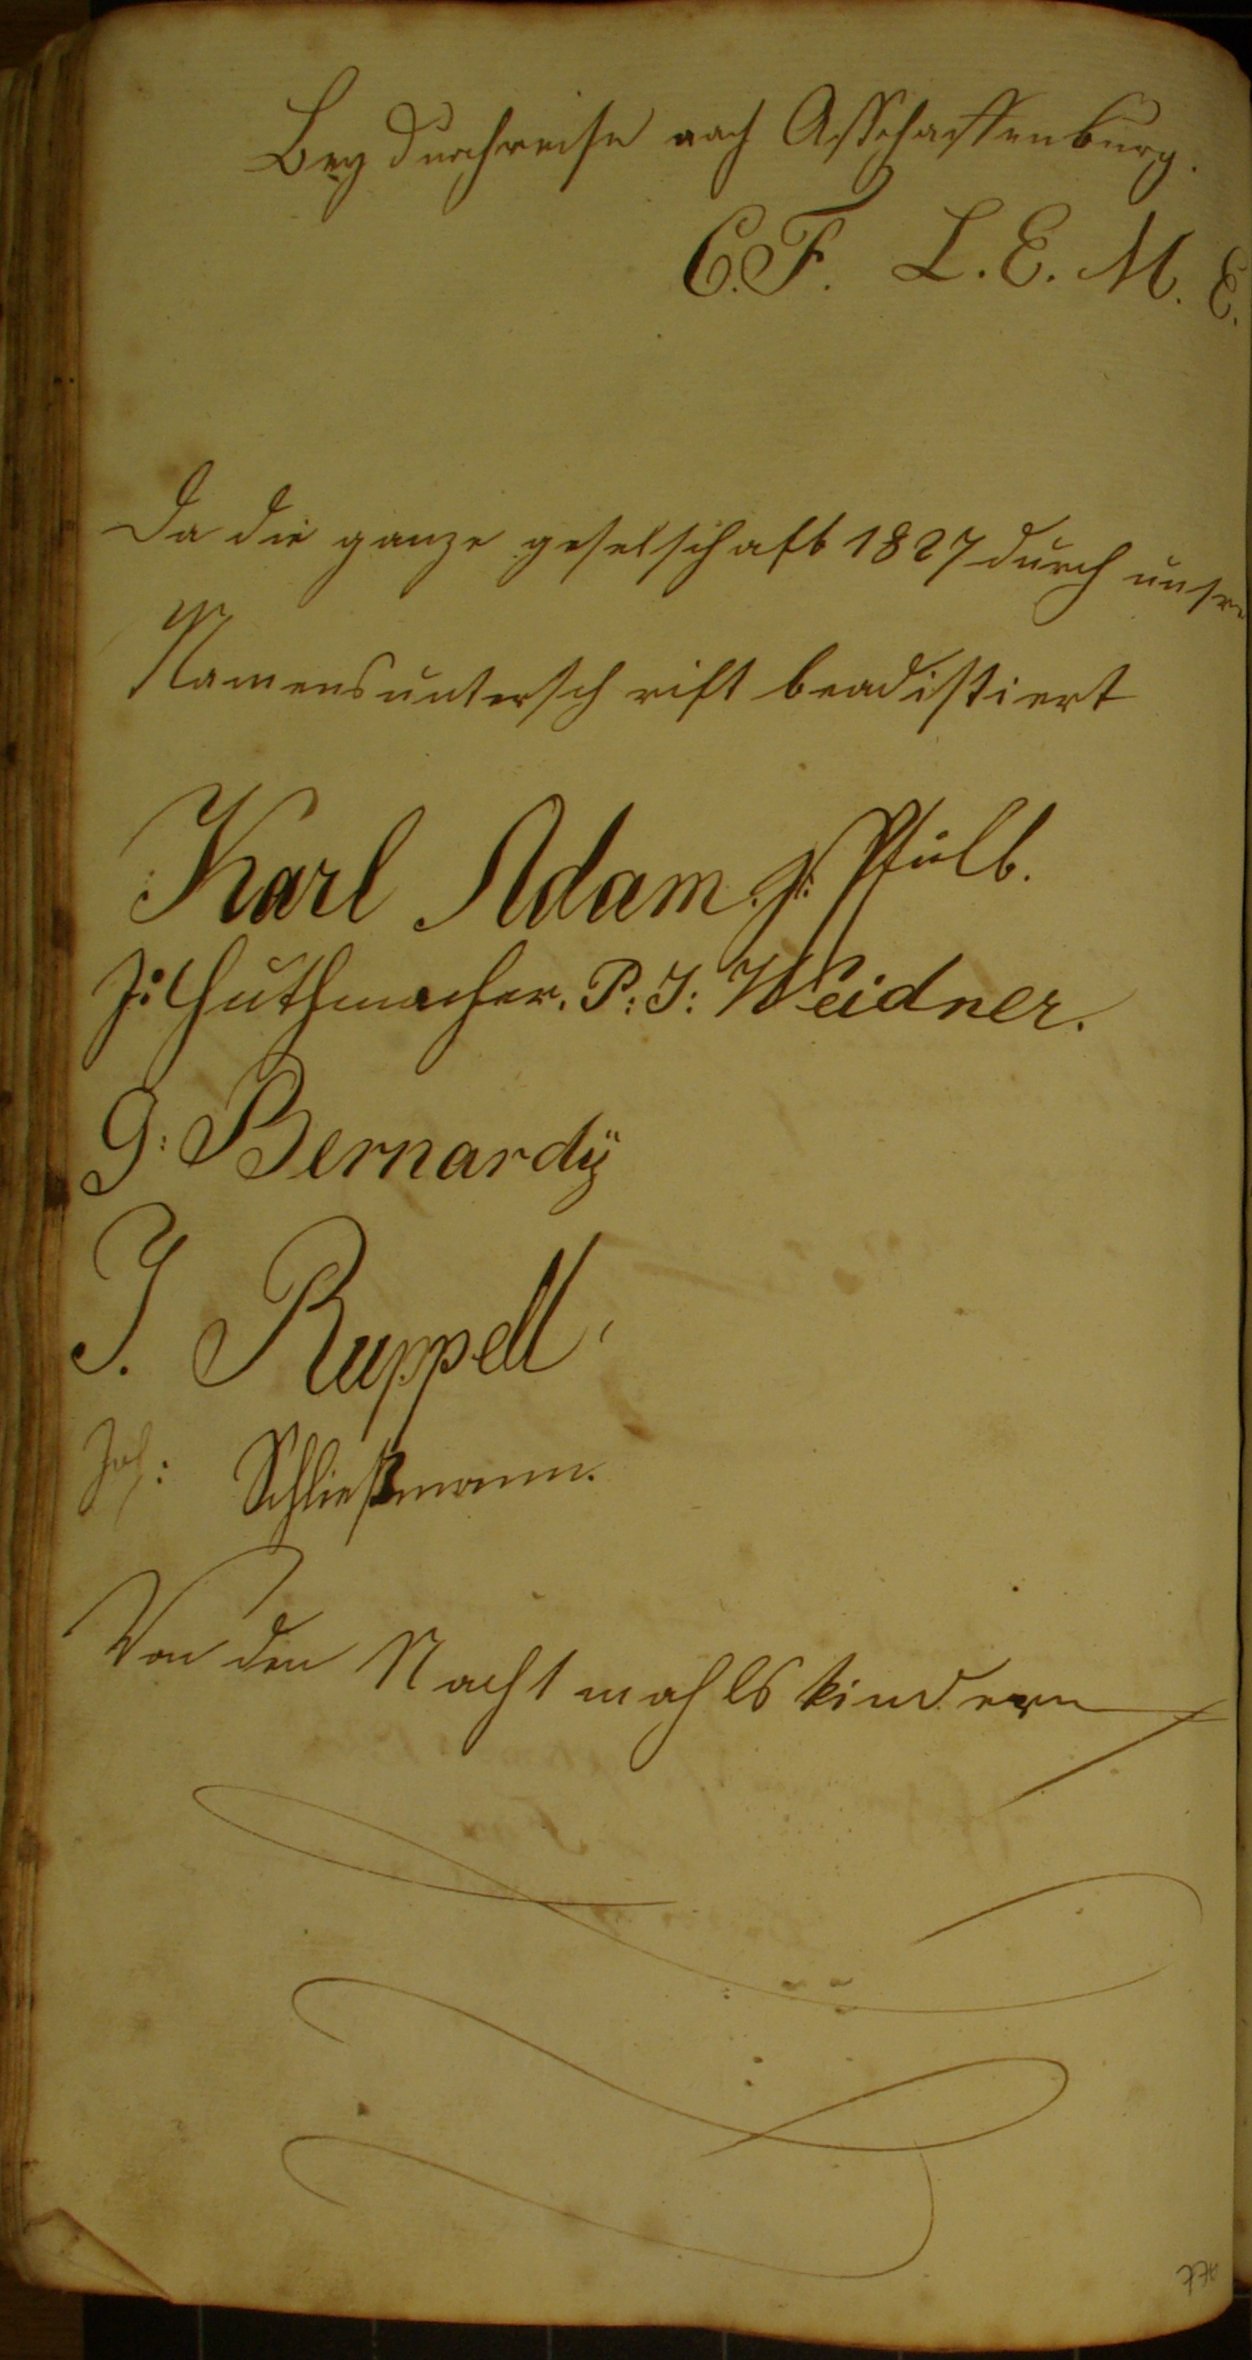 Bey Durchreise nach Asschaffenburg.
C. F. L. E. M. E.
Da die ganze geselschaft 1827 durch unsre
Namensunterschrift beadistiert
Karl Adam. J: Pfülb.
J: Huthmacher. P: J: Weidner.
G: Bernardÿ
J. Ruppell
Joh: Schließmann.
Von den Nachtmahlskindern